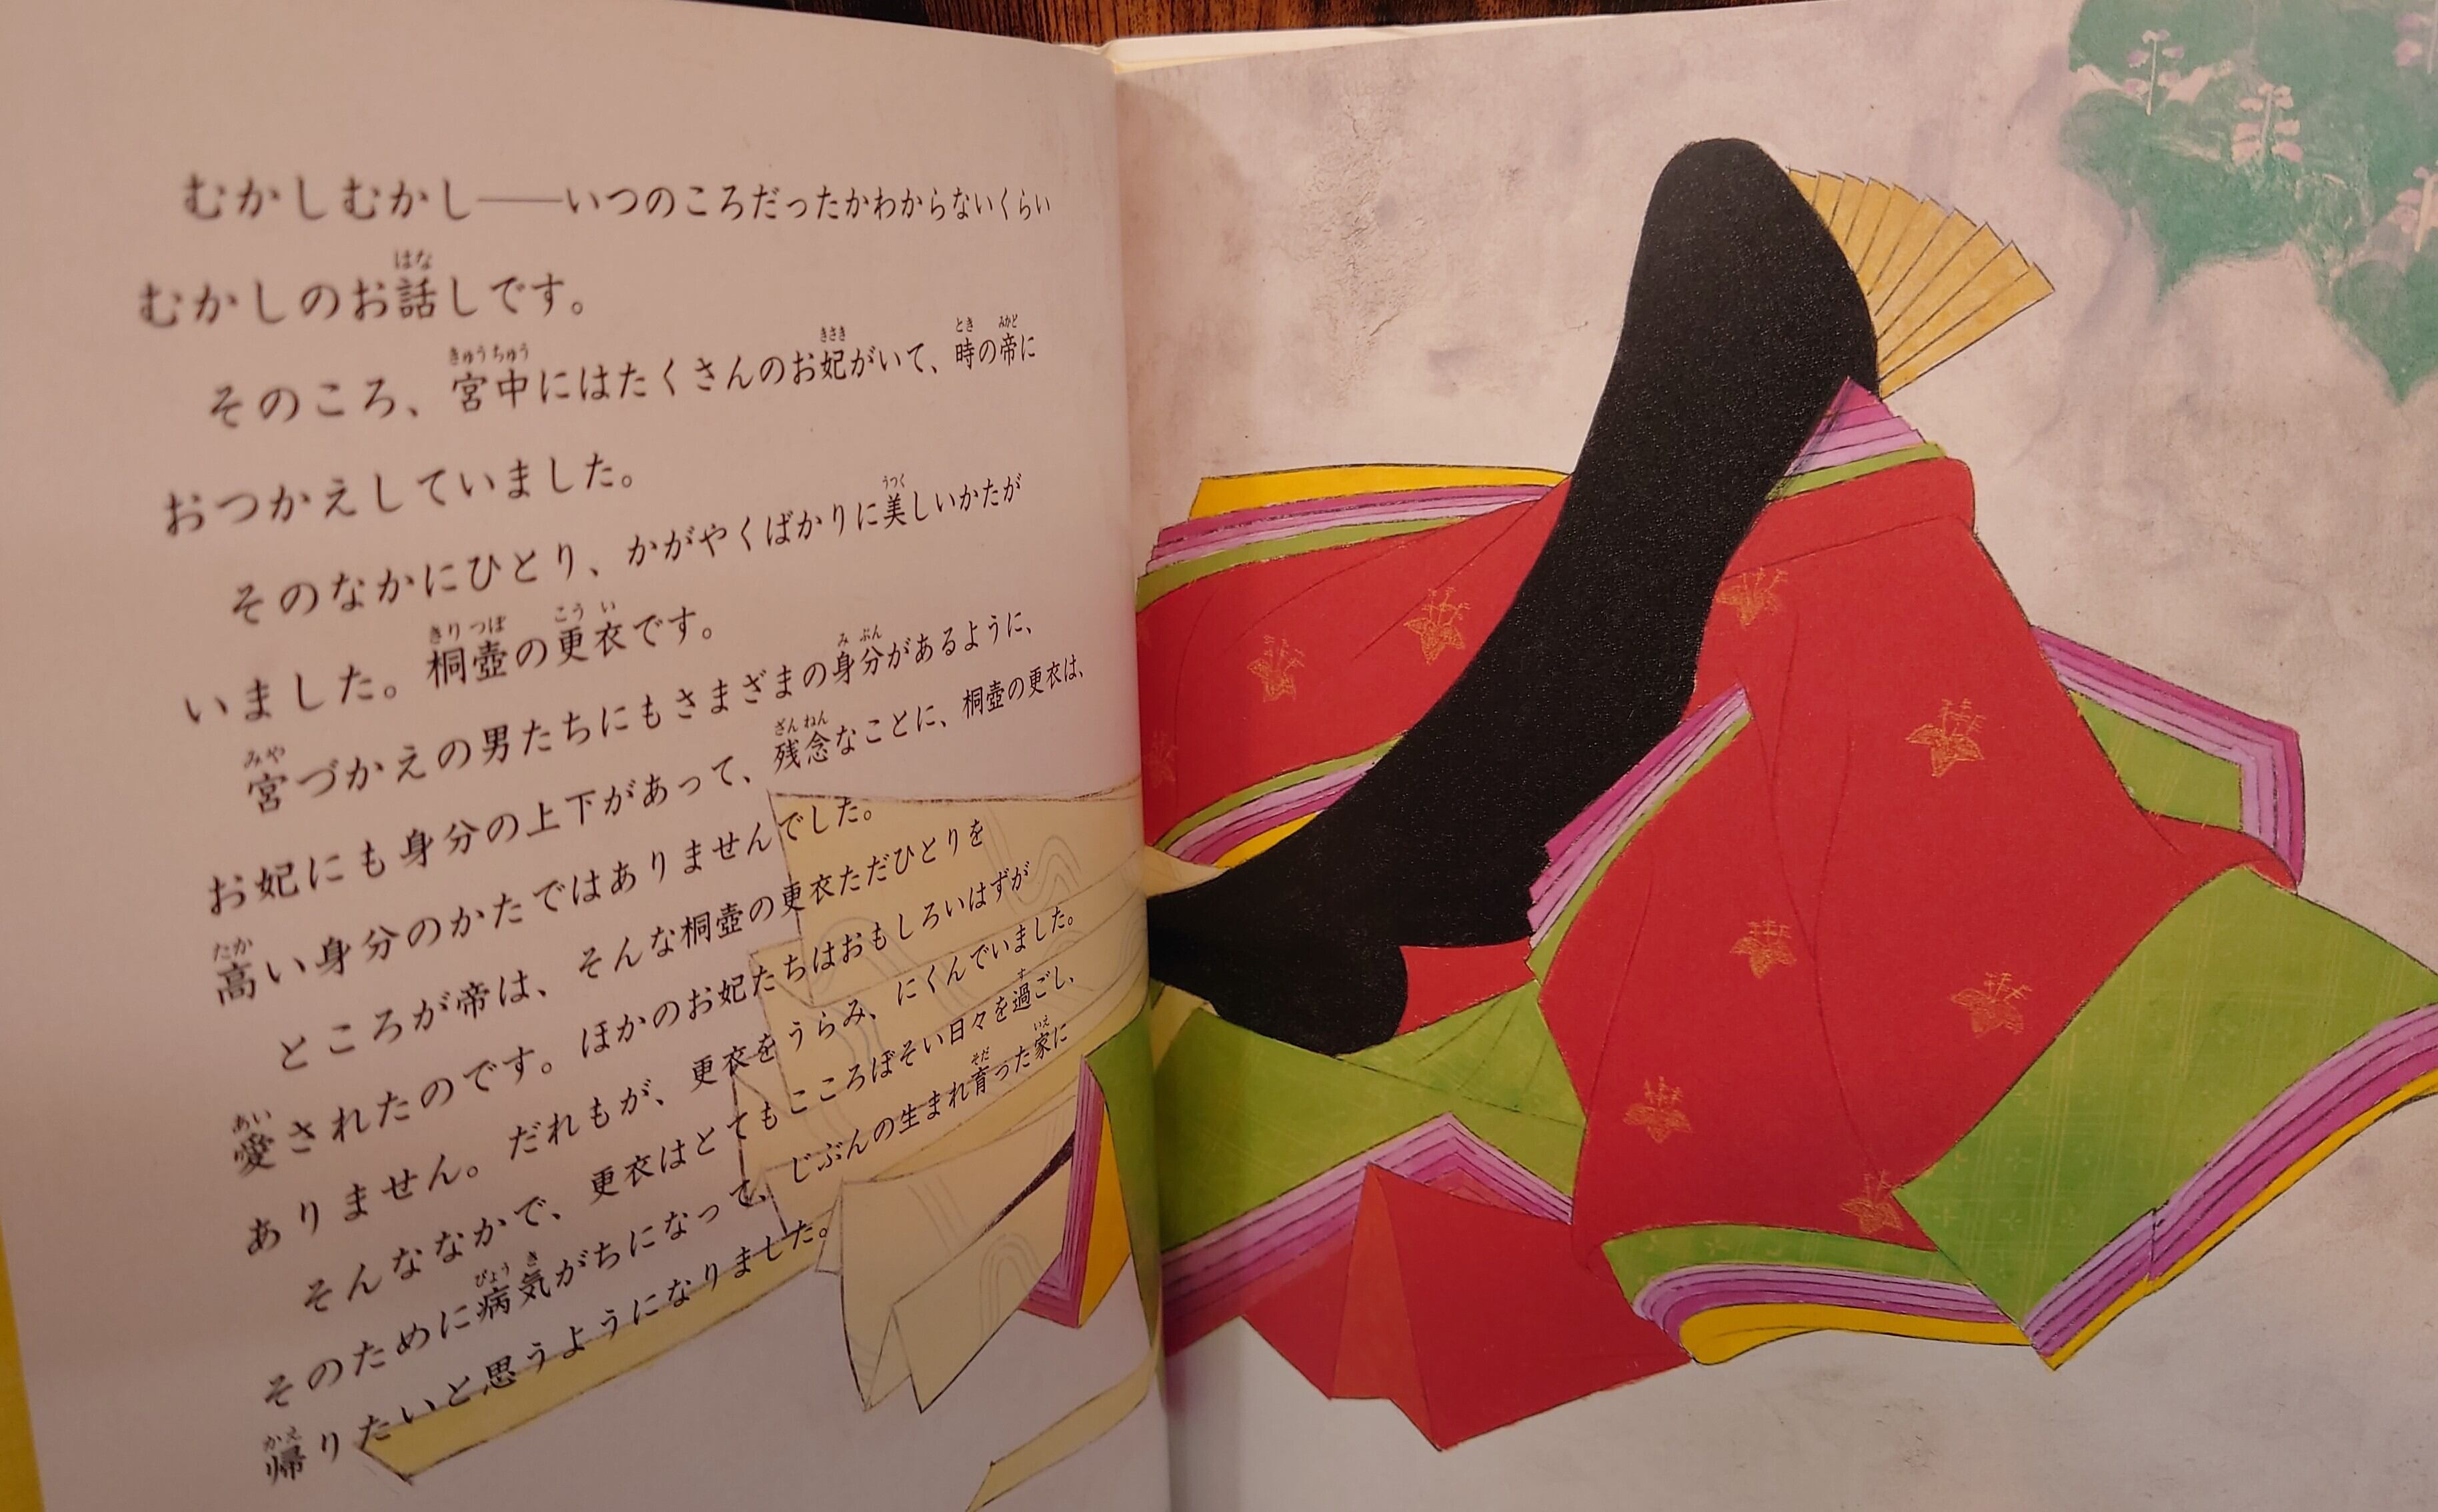 むかしむかし――いつのころだったかわからないくらい
むかしのお話しです。
そのころ、宮中にはたくさんのお妃がいて、時の帝に
おつかえしていました。
そのなかにひとり、かがやくばかりに美しいかたが
いました。桐壺の更衣です。
宮づかえの男たちにもさまざまの身分があるように、
お妃にも身分の上下があって、残念なことに、桐壺の更衣は、
高い身分のかたではありませんでした。
ところが帝は、そんな桐壺の更衣ただひとりを
愛されたのです。ほかのお妃たちはおもしろいはずが
ありません。だれもが、更衣をうらみ、にくんでいました。
そんななかで、更衣はとてもこころぼそい日々を過ごし、
そのために病気がちになって、じぶんの生まれ育った家に
帰りたいと思うようになりました。